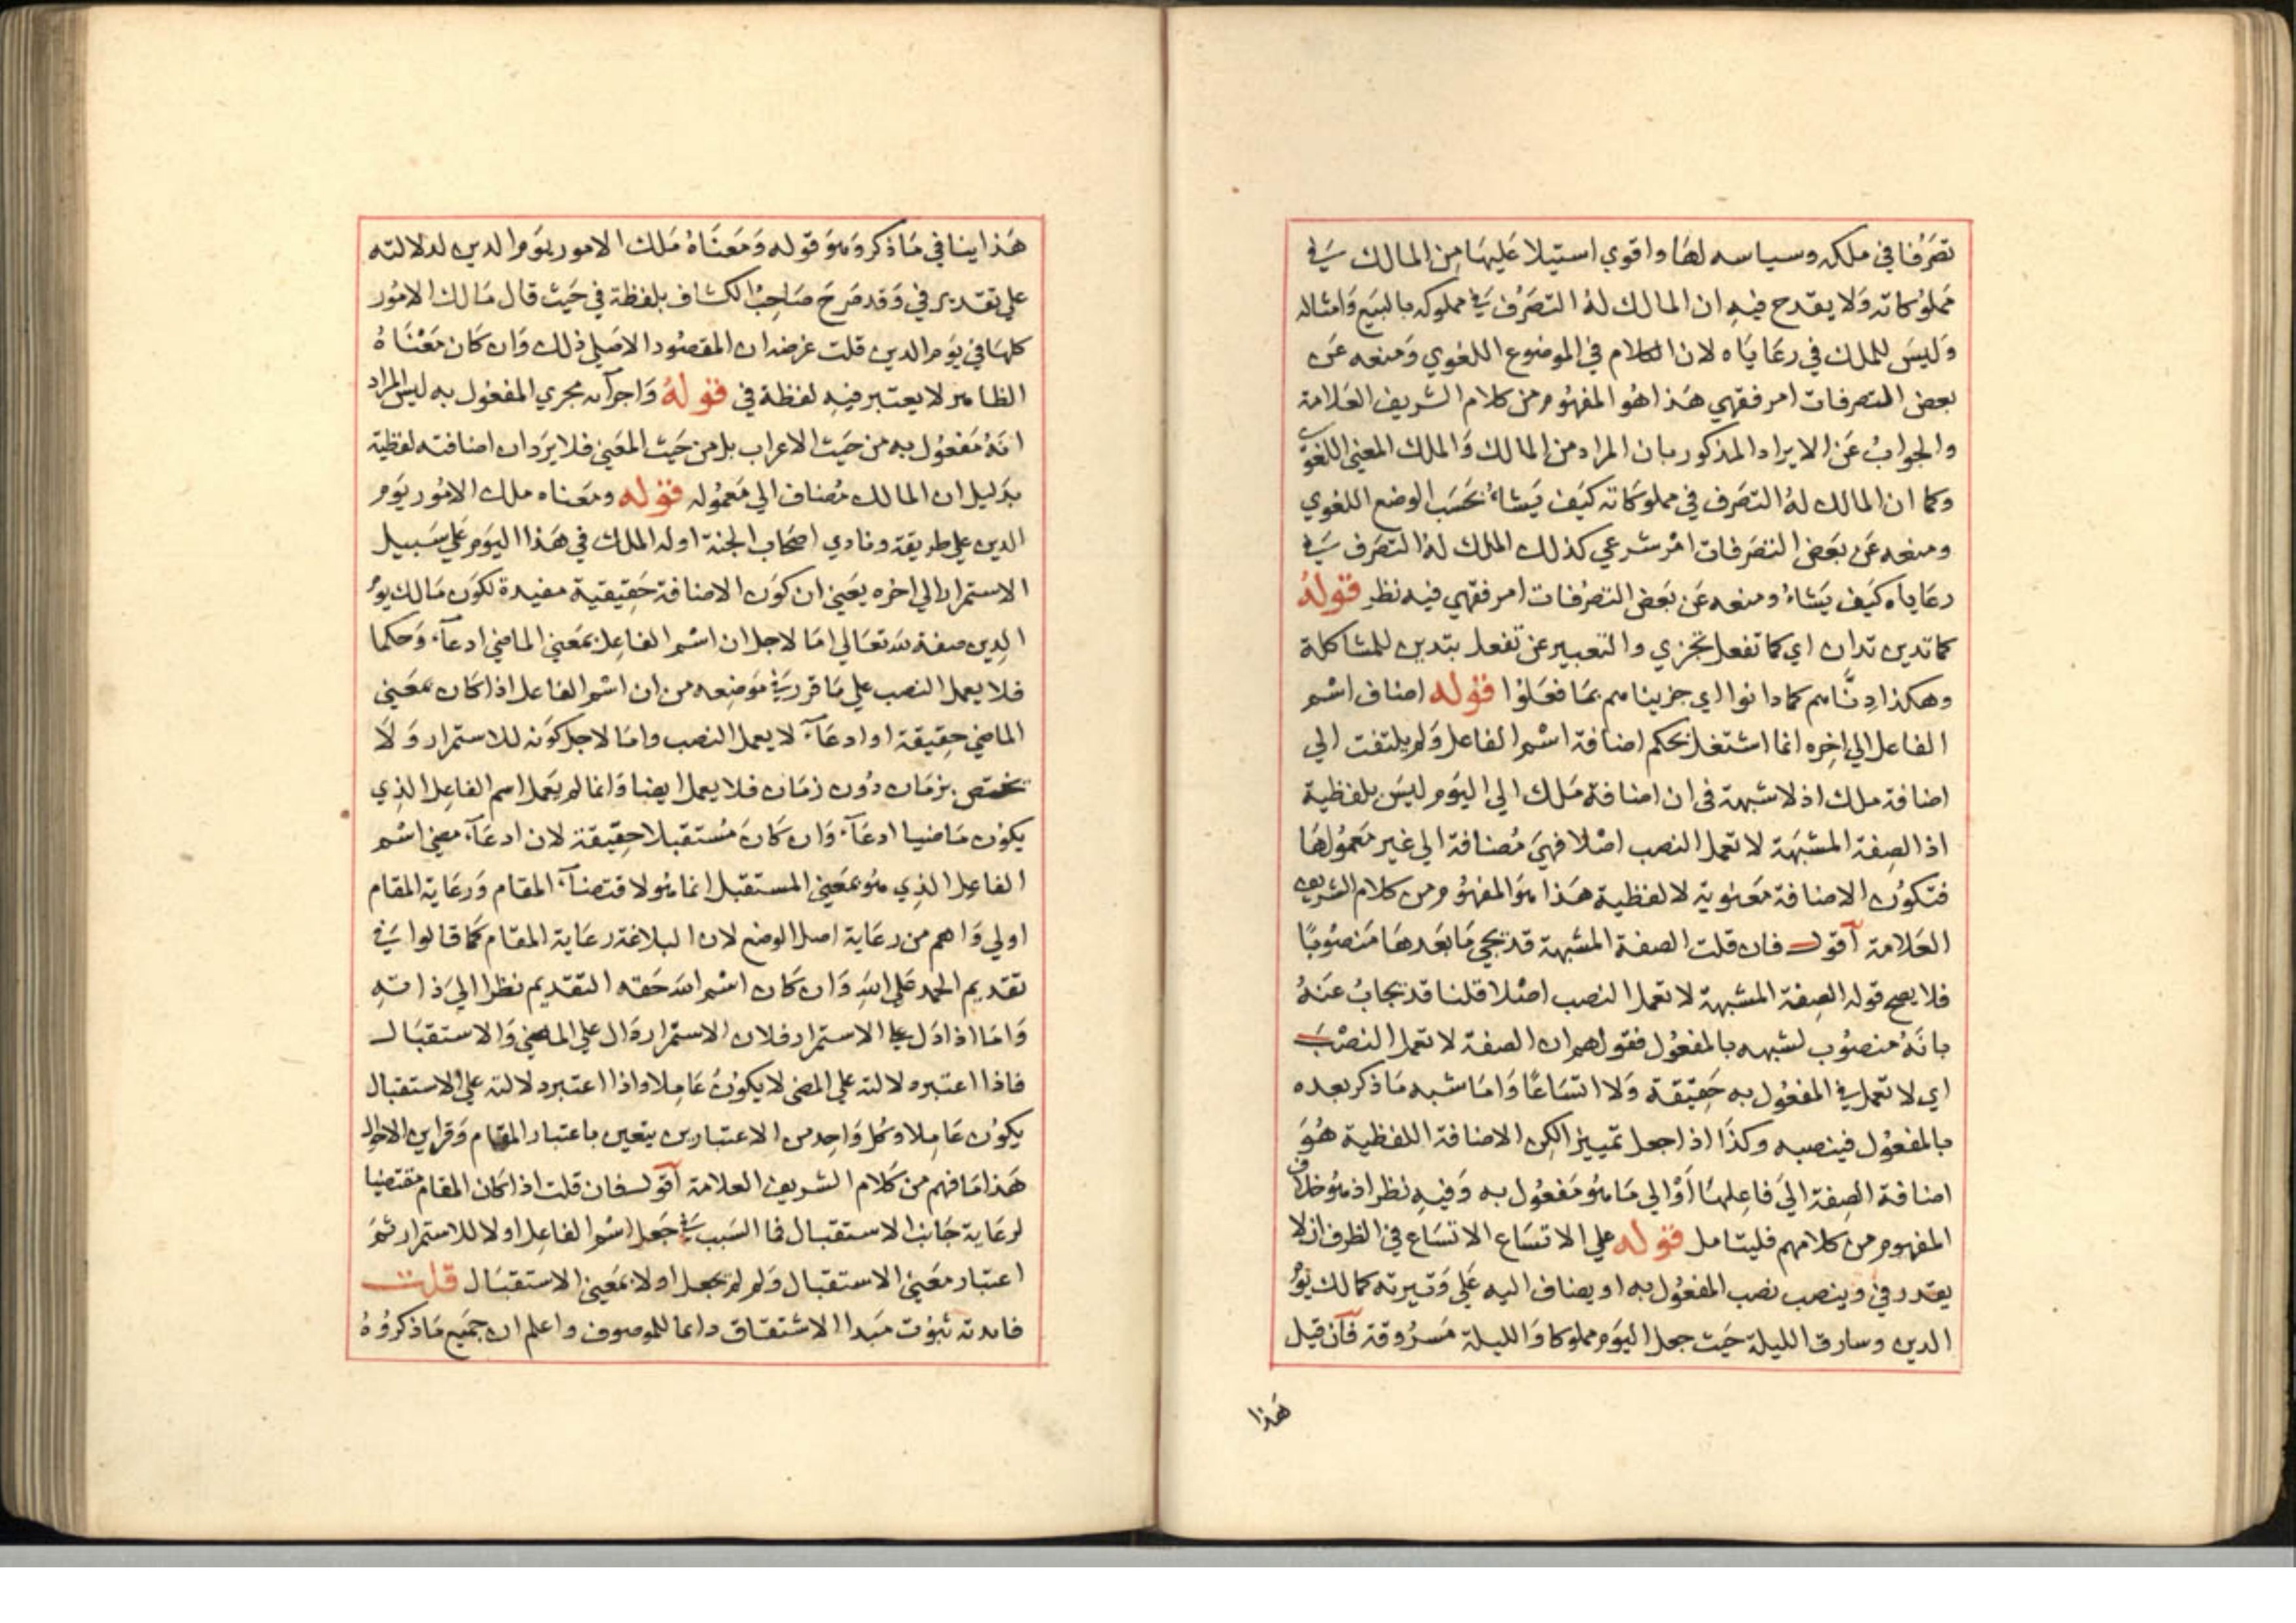 تصَرُفا في ملكه وسياسه لهَا واقوي استيلا عَليهَا مِن المالك في
مَملوُكاته وَلا يقدح فيهِ ان المالك لهُ التصَرُف في مملوكه بالبَيع وَامثاله
وَليسَ للملك في رعَايَاه لان الكلام في الموضوع اللغوي وَمنعه عَن
بعض التصرفات امر فقهي هَذا هُو المفهُوم من كلام الشريف العَلامة
والجوابُ عَن الايراد المذكور بان المراد من المالك وَالملك المعني اللغوي
وكما ان المالك لهُ التصَرف في مملوكَاته كيَف يَشاءُ بحَسَب الوضع اللغوي
ومنعه عَن بعَض التصَرفات امْر شرعي كذلك الملك لهُ التصَرف في
رعَاياه كيَف يَشاءُ ومنعه عَن بعَض التصرُفات امر فقهي فيه نظر قولهُ
كما تدين تدان اي كما تفعل تجزي والتعبير عن تفعل بتدين للمشاكلة
وهكذا دِنَّاهم كما دانوا اي جزيناهم بمَا فعَلوُا قوله اضاف اسْم
الفاعل الي اخِره انما اشتغل بحكم اضافة اسْم الفاعل وَلم يلتفت الي
اضافة ملك اذ لا شبهة في ان اضافة مَلك الي اليَوم ليسَ بلفظية
اذ الصِفة المشبَهة لا تعمل النصب اصْلا فهيَ مُضافة الي غير مَعمُولهَا
فتكوُن الاضافة مَعنوية لا لفظية هَذا هوَ المفهُوم من كلام الشريف
العَلامة أقول فان قلت الصفة المشبهة قد يجي مَا بعَدهَا مَنصُوبًا
فلا يصح قوله الصِفة المشبهة لا تعمل النصب اصْلا قلنا قد يجابُ عَنهُ
بانَهُ منصوُب لشبهه بالمفعُول فقولهم ان الصفة لا تعمل النصْبَ
اي لا تعمل في المفعُول به حَقِيقة وَلا اتسَاعًا وَامَا شبه مَا ذكر بعده
بالمفعُول فينصبه وكذَا اذا جعل تمييز الكِن الاضافة اللفظية هُوَ
اضافة الصِفة اليَ فاعِلهَا اَوْ الي مَا هوُ مَفعُول به وَفيهِ نظر اذ هوُ خلاف
المفهوم من كلامهم فليتامل قوله علي الاتسَاع الاتسَاع في الظرف ان لا
يقدر في وَينصب نصب المفعُول به او يضاف اليه عَلي وَتيرته كمالك يوَم
الدين وسارق الليلة حَيث جعل اليَوم مملوكا وَالليلة مَسرُوقة فآن قيل
هَذا
هَذا ينافي مَا ذكر وَهوَ قوله وَمَعنَاهُ مَلك الامور يَوم الدين لدلالته
علي تقدير في وَقد صَرحَ صَاحِبُ الكشاف بلفظة في حَيث قال مَالك الامُور
كلهَا في يَوم الدين قلت غرضه ان المقصُود الاصَلي ذلك وَان كان مَعْنَاهُ
الظاهر لا يعتبر فيهِ لفظة في قولهُ وَاجرآه مجري المفعُول به ليسَ المراد
انهُ مَفعُول به من حَيث الاعراب بل من حَيث المعَني فلا يرَد ان اضافته لفظية
بدَليل ان المالك مُضاف الي مَعمُوله قوله ومَعناه ملك الامُور يَوم
الدين علي طريقة ونادي اصحَاب الجنة اوله الملك في هَذا اليَوم عَلي سَبيل
الاستمرار الي اخره يعَني ان كوَن الاضافة حَقِيقية مفيدة لكوَن مَالك يوَم
الدِين صفة لله تعَالي امَا لاجل ان اسْم الفاعِل بمَعني الماضي ادعآءً وَحكما
فلا يعمل النصب علي مَا قرر في مَوضِعه من ان اسْم الفاعل اذا كان بمعَني
الماضي حِقيقة او ادعَآءً لا يعمل النصب وامَا لاجل كوَنه للاستمرار وَلَا
تختصّ بزمَان دُون زمَان فلا يعمل ايضا وَانما لم يَعمل اسم الفاعِل الذِي
يكوُن مَاضيا ادعَآءً وَان كَانَ مُستقبلا حِقيقة لان ادعَآء معني اسْم
الفاعِل الذِي هوُ بمعَني المستقبل انما هوُ لاقتضآء المقام وَرعَاية المقام
اولي وَاهم من رعَاية اصل الوضع لان البلاغة رعَاية المقام كمَا قالوا في
تقديم الحمد علي اللهِ وَان كَان اسْم الله حَقه التقديم نظرا اليَ ذاتهِ
وَامَا اذا دَل علي الاستمرار فلان الاستمرار دَال علي الماضي وَالاستقبَال
فاذا اعتبر دلالته علي المضي لا يكوُنُ عَامِلا واذا اعتبر دلالته علي الاستقبال
يكوُن عَامِلا وكل وَاحِد من الاعتبارين يتعين باعتبار المقام وَقراين الاحوال
هَذا مَا فهم من كَلام الشريف العلامة أقول فان قلت اذا كان المقام مقتضيا
لرعَاية جَانب الاستقبال فما السَبب في جَعل اسْم الفاعِل اولا للاستمرار ثمَ
اعتبار معَني الاستقبال وَلم لم يجعل اولا بمَعني الاستقبَال قلت
فايدته ثبوُت مَبدا الاشتقاق دايما للموصوف واعلم ان جمَيع مَا ذكرُوُهُ